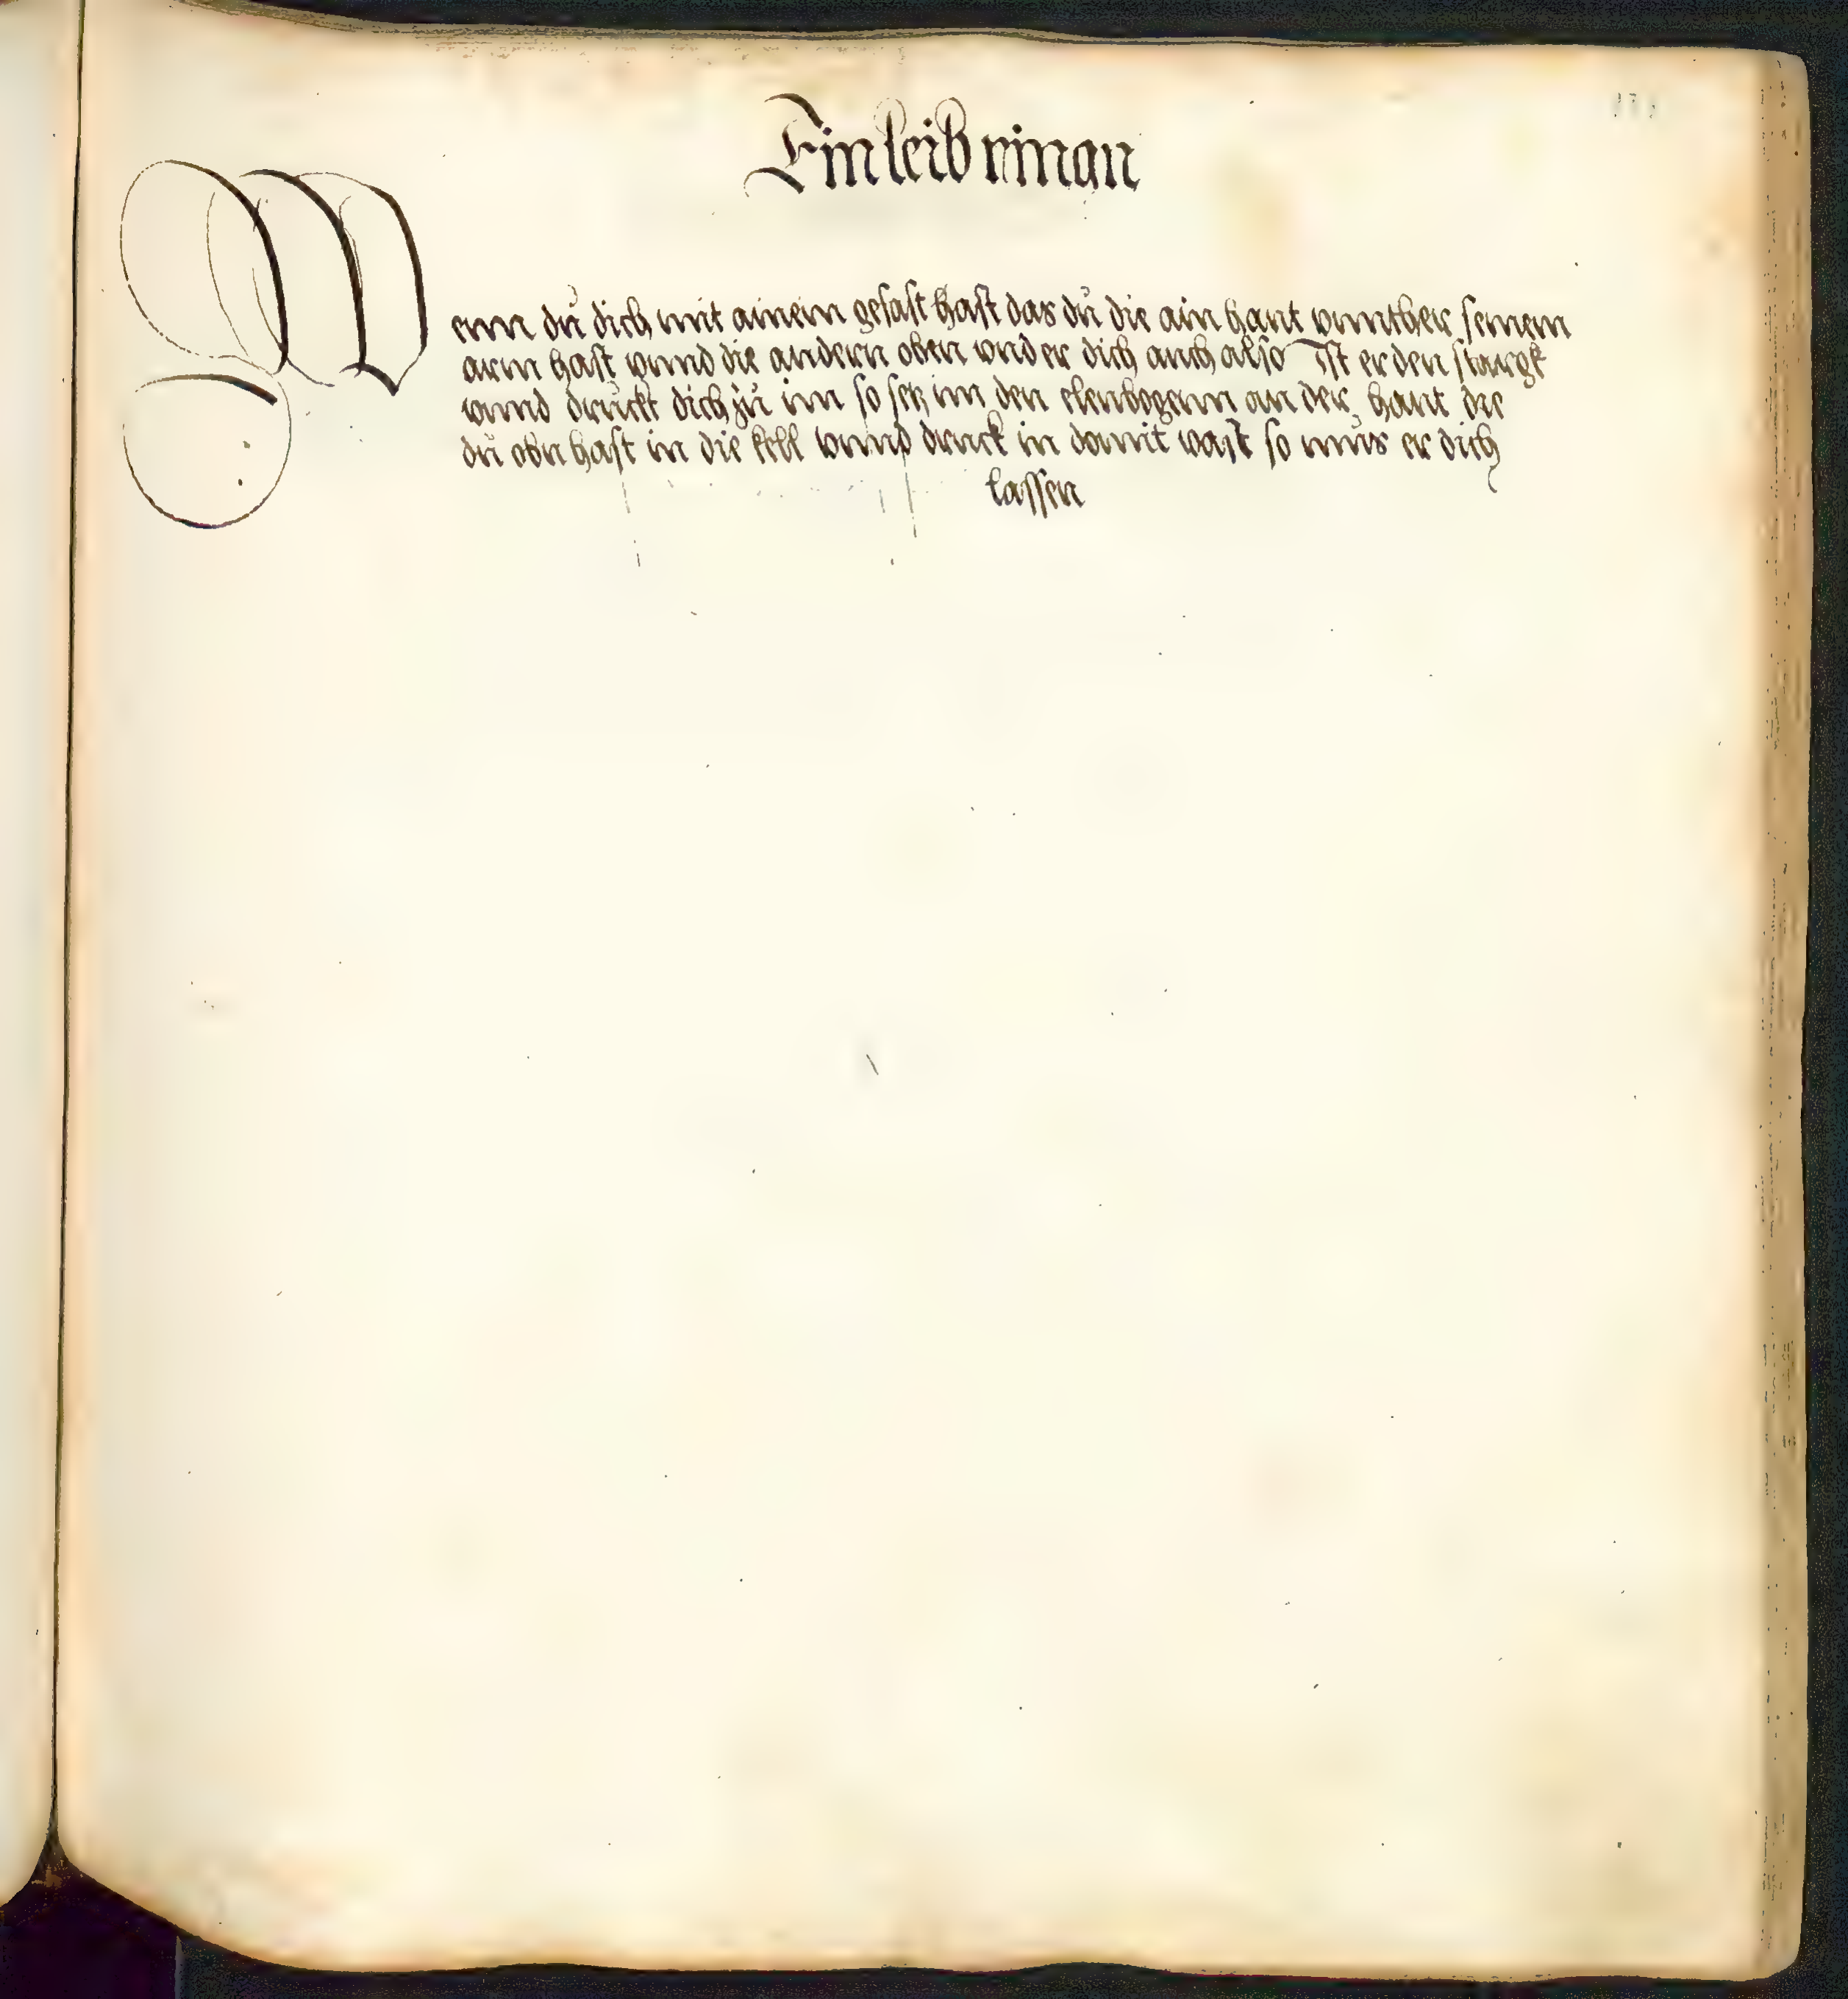 Ein leib ringn
Wenn dů dich mit ainem gefast hast das dů die ain hant vnnther seinem
arm hast vnnd die andern oben vnd er dich auch also Ist er den stargk
vnnd drůckt dich zů im so setz im den elenbogenn an der hant die
dů obn hast in die kell vnnd druck in domit vast so můs er dich
lassen